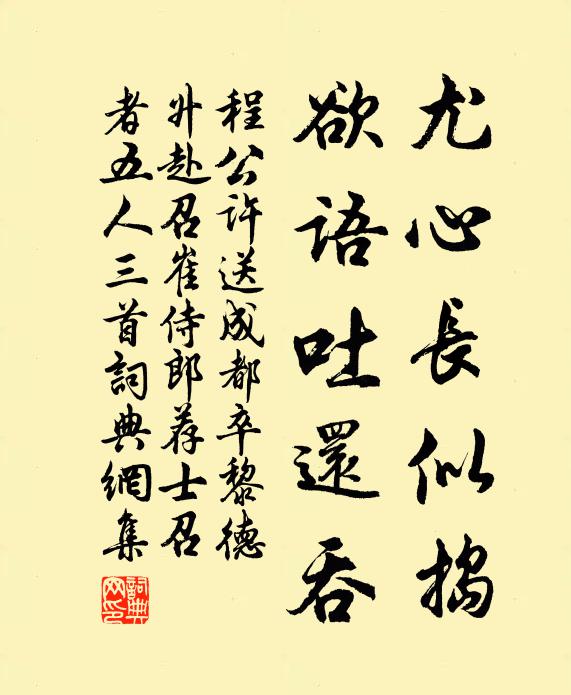 尤心長似搗
欲語吐還吞
程公許送成都卒黎德
升赴召崔侍郎荐士召
者五人三首詞典網集
詞典
网印